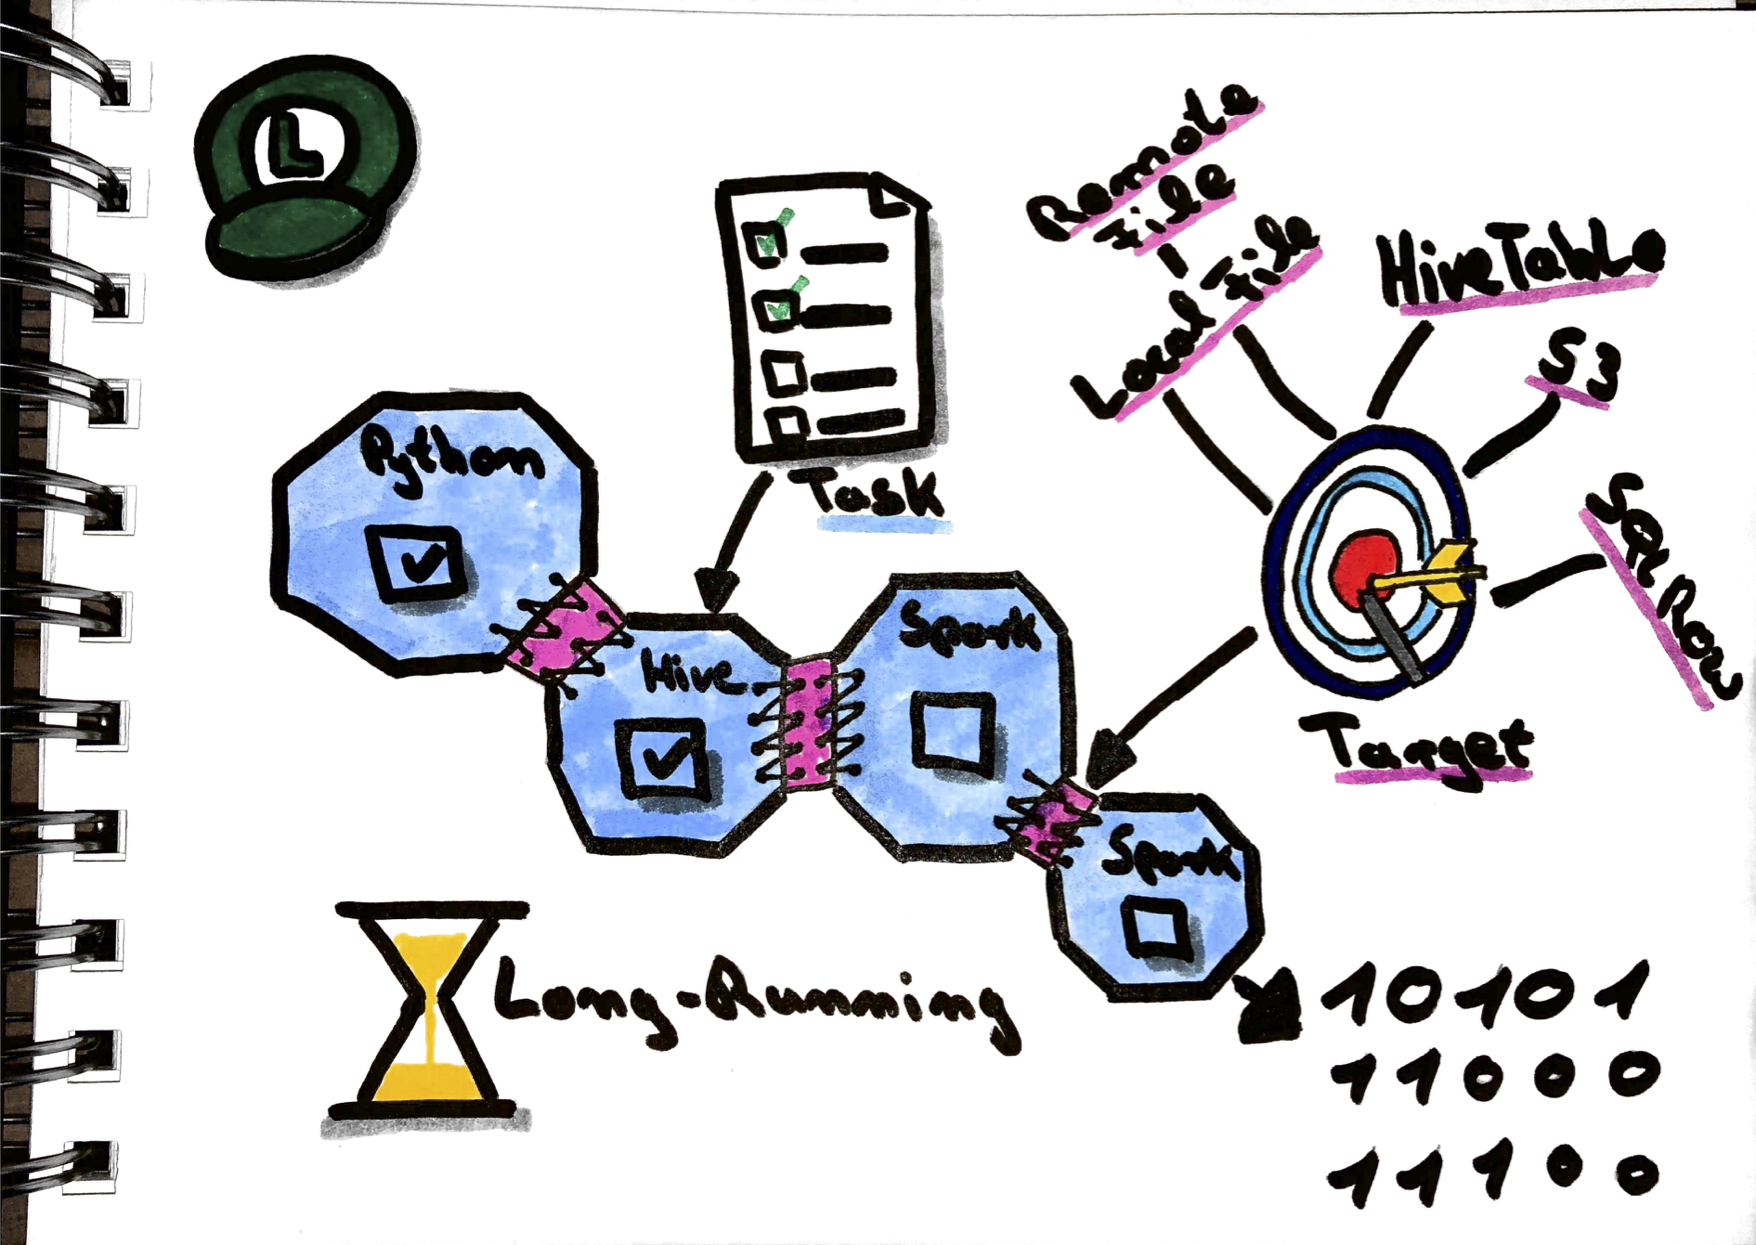 L
Remote
File
Local File
HiveTable
S3
SQL Row
Target
Task
Python
Hive
Spark
Spark
Long-Running
10101
11000
11100